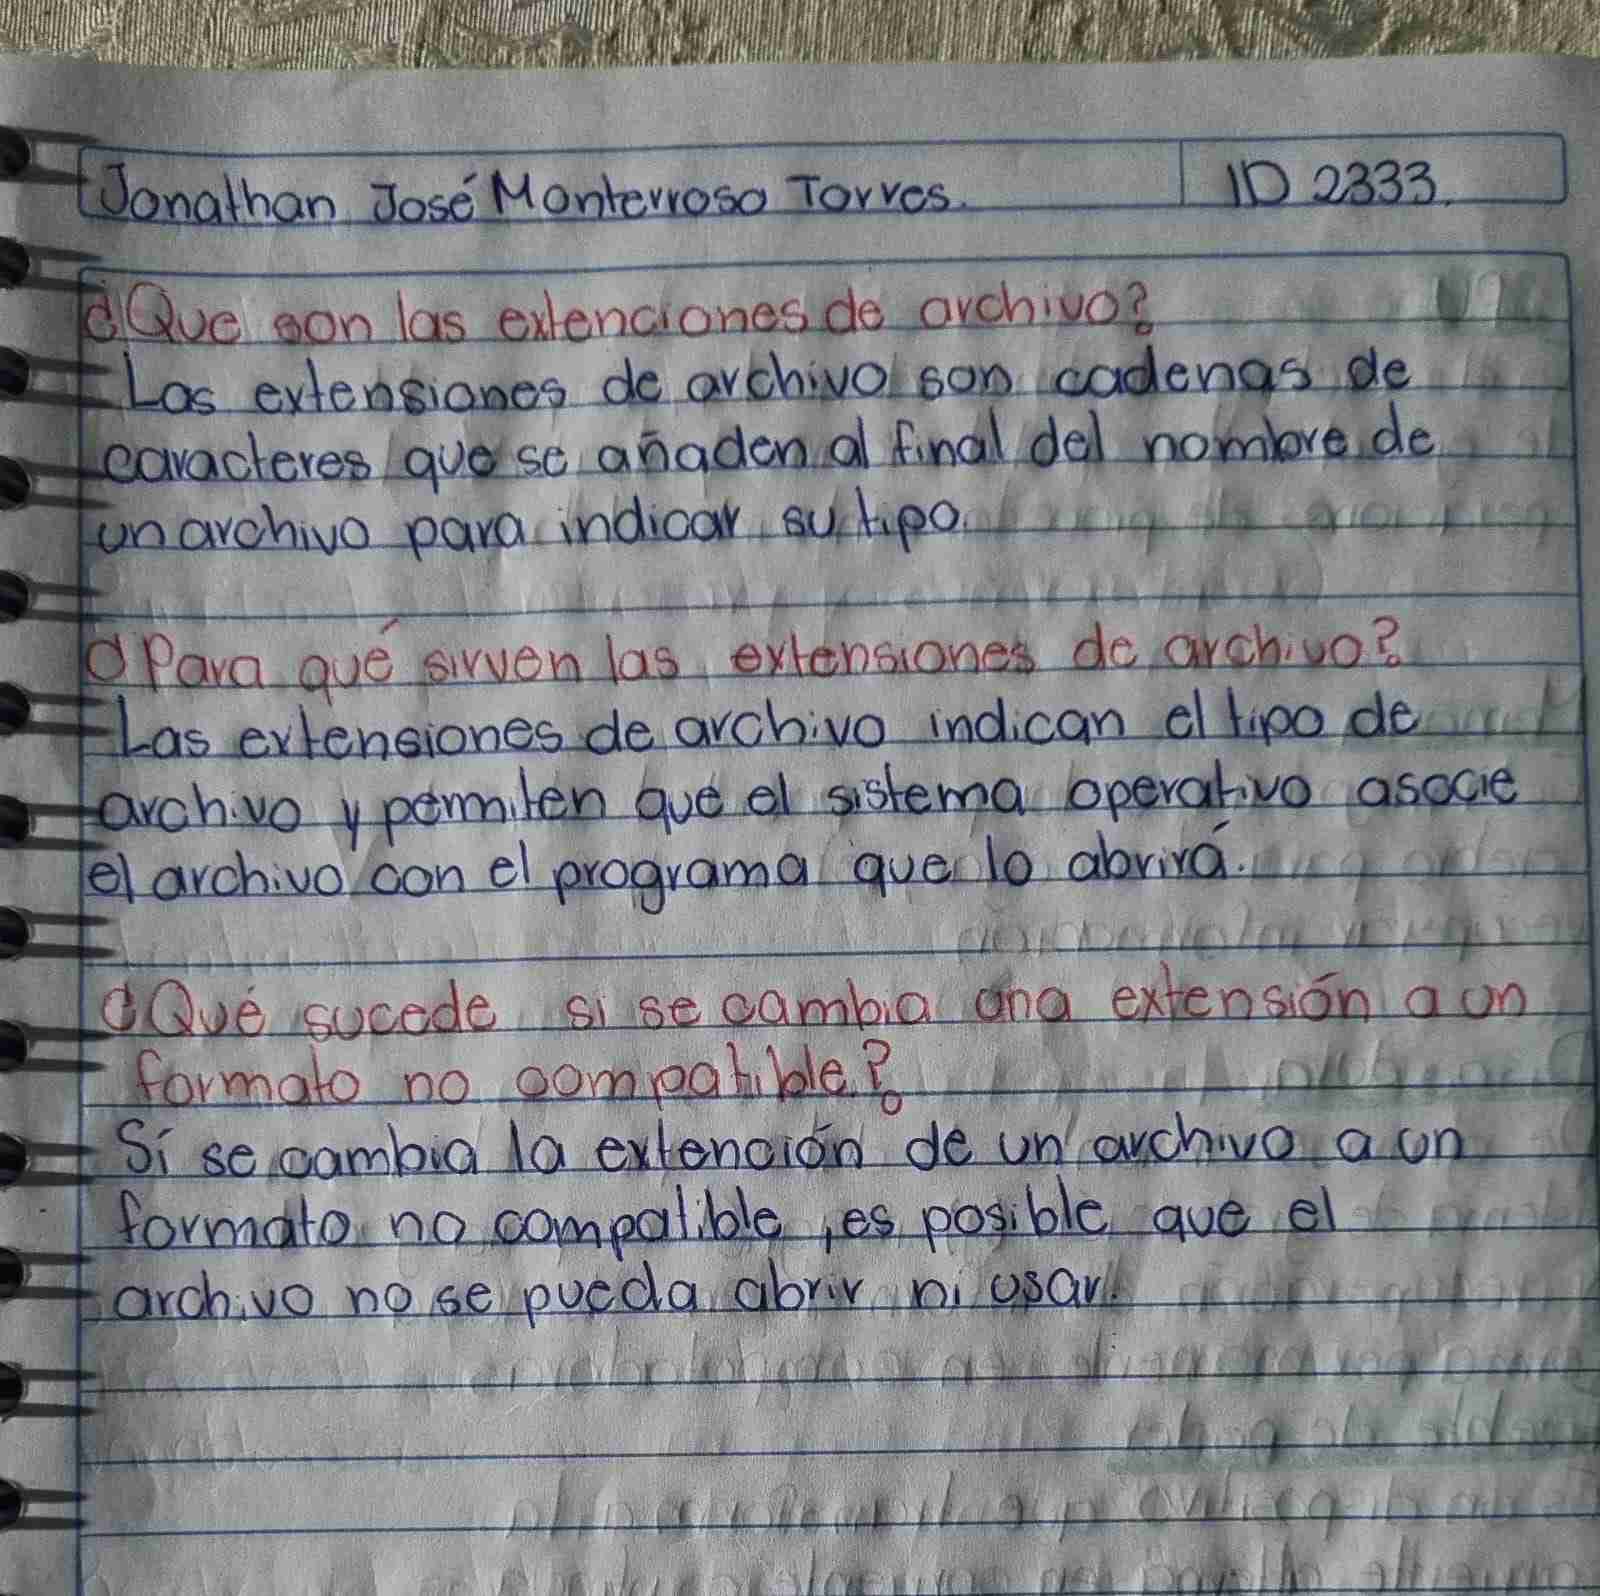 Jonathan José Monterroso Torres. ID 2333.
¿Que son las extenciones de archivo?
Las extensiones de archivo son cadenas de
caracteres que se añaden al final del nombre de
un archivo para indicar su tipo.
¿Para qué sirven las extensiones de archivo?
Las extensiones de archivo indican el tipo de
archivo y permiten que el sistema operativo asocie
el archivo con el programa que lo abrirá.
¿Qué sucede si se cambia una extensión a un
formato no compatible?
Sí se cambia la extención de un archivo a un
formato no compatible, es posible que el
archivo no se pueda abrir ni usar.